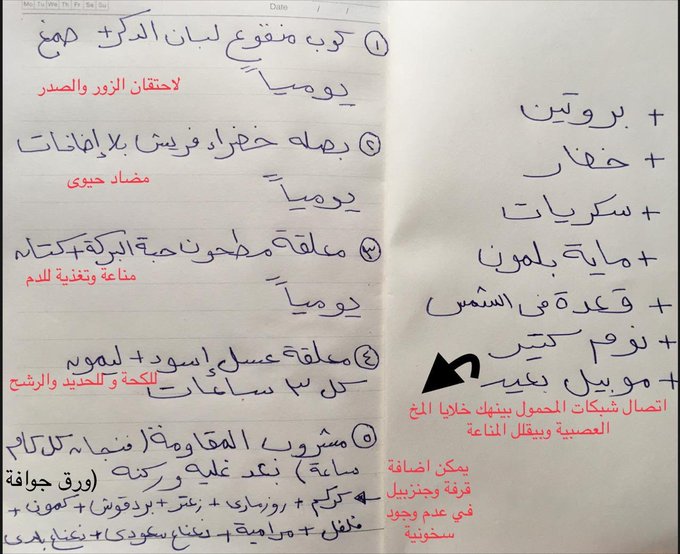 Mo Tu We Th Fr Sa Su
Date / /
① كوب منقوع لبان الدكر + صمغ
يومياً
لاحتقان الزور والصدر
② بصله خضراء فريش بلا إضافات
مضاد حيوى
يومياً
③ معلقة مطحون حبة البركة + كتان
مناعة وتغذية للدم
يومياً
④ معلقة عسل إسود + ليمون
للكحة و للحديد والرشح
كل ٣ ساعات
⑤ مشروب المقاومة (فنجان كل كام
ساعة) بعد غليه وركنه
(ورق جوافة
كركم + روزماري + زعتر + بردقوش + كمون +
فلفل + مرامية + نعناع سعودي + نعناع بلدى
+ بروتين
+ خضار
+ سكريات
+ ماية بلمون
+ قعدة فى الشمس
+ نوم كتير
+ موبيل بعيد
اتصال شبكات المحمول بينهك خلايا المخ
العصبية وبيقلل المناعة
يمكن اضافة
قرفة وجنزبيل
في عدم وجود
سخونية